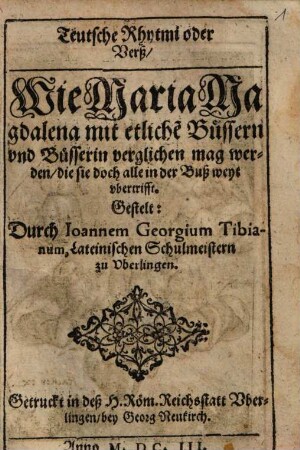 1
Teutsche Rhytmi oder
Verß/
Wie Maria Ma
gdalena mit etlichē Büssern
vnd Büsserin verglichen mag wer-
den/die sie doch alle in der Buß weyt
vbertrifft.
Gestelt:
Durch Ioannem Georgium Tibia-
num, Lateinischen Schulmeistern
zu Vberlingen.
Getruckt in deß H. Röm. Reichsstatt Vber-
lingen/bey Georg Neukirch.
Anno M. DC. III.